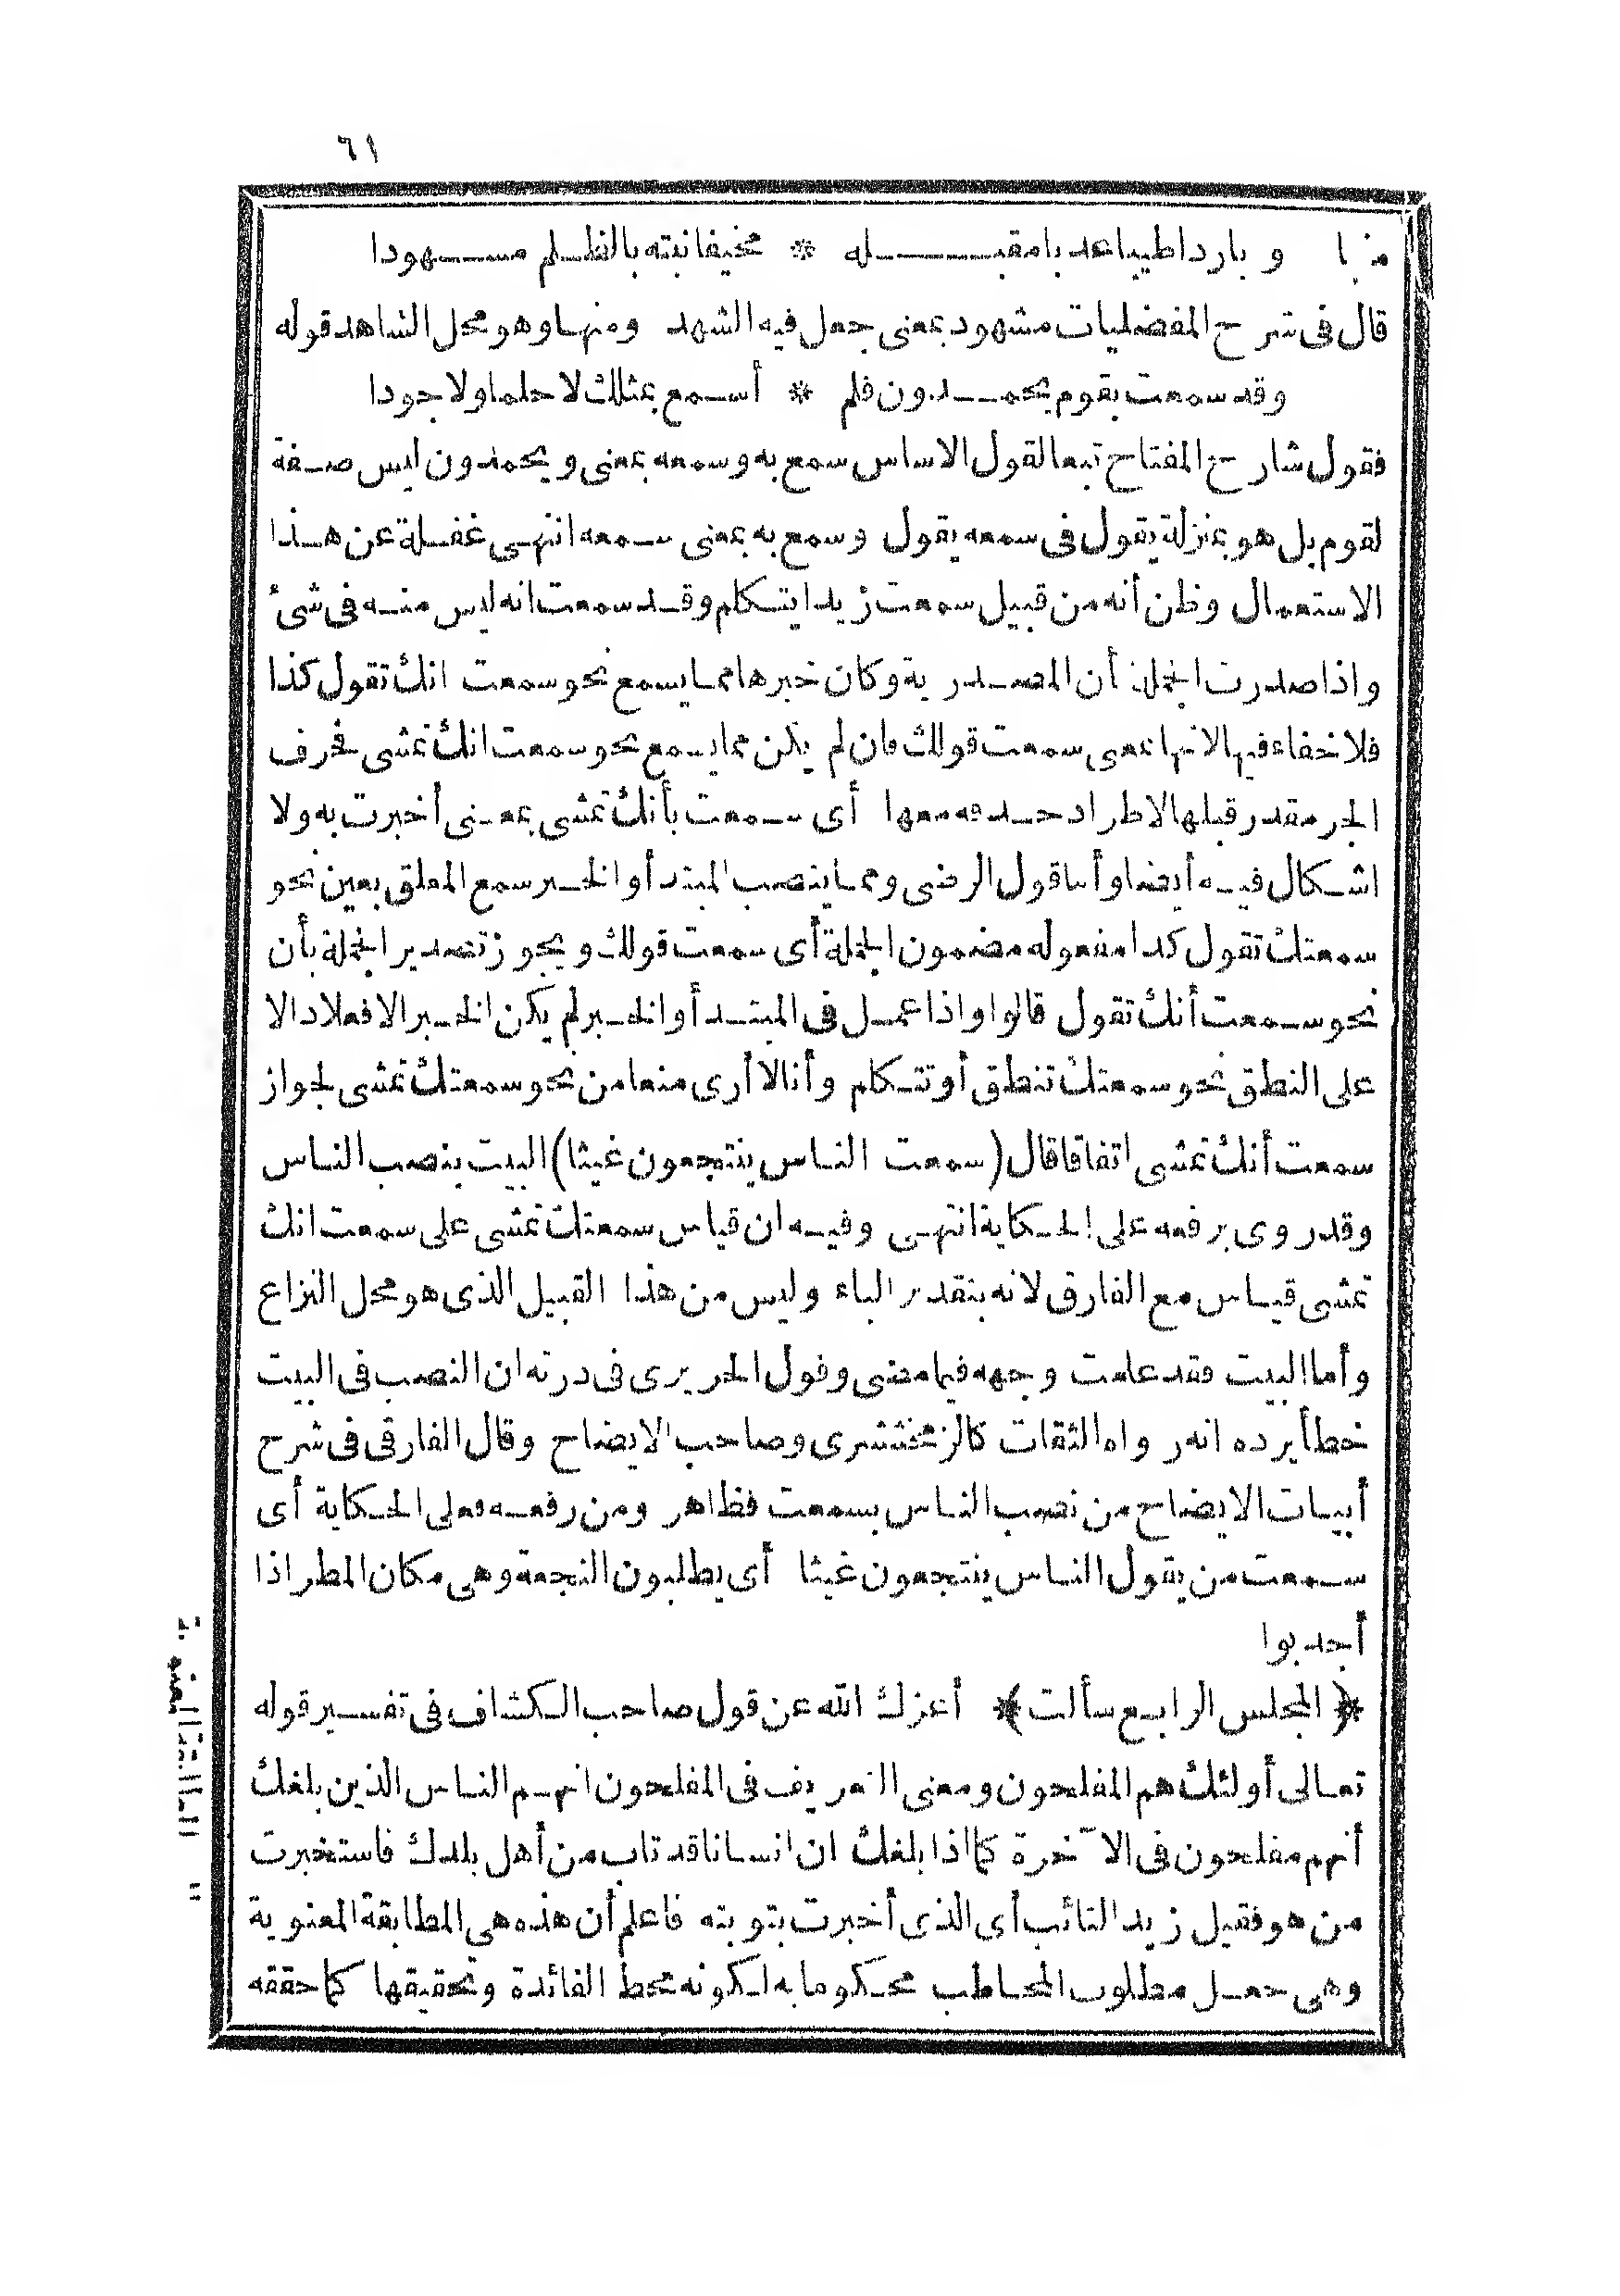 ٦١
منها وبارداطيباعذبامقبله * مخيفانبته بالظلم مشهودا
قال فى شرح المفضليات مشهود بمعنى جعل فيه الشهد ومنها وهو محل الشاهد قوله
وقد سمعت بقوم يحمدون فلم * أسمع بمثلك لا حلما ولا جودا
فقول شارح المفتاح تبعا لقول الاساس سمع به وسمعه بمعنى ويحمدون ليس صفة
لقوم بل هو بمنزلة يقول فى سمعه يقول وسمع به بمعنى سمعه انتهى غفلة عن هذا
الاستعمال وظن أنه من قبيل سمعت زيدا يتكلم وقد سمعت انه ليس منه فى شئ
واذا صدرت الجملة أن المصدرية وكان خبرها مما يسمع نحو سمعت انك تقول كذا
فلا خفاء فيها لانها بمعنى سمعت قولك فان لم يكن مما يسمع نحو سمعت انك تمشى فحرف
الجر مقدر قبلها لاطراد حذفه معها أى سمعت بأنك تمشى بمعنى أخبرت به ولا
اشكال فيه أيضا وأما قول الرضى ومما ينصب المبتدأ والخبر سمع المعلق بعين نحو
سمعتك تقول كذا مفعوله مضمون الجملة أى سمعت قولك ويجوز تصدير الجملة بأن
نحو سمعت أنك تقول قالوا واذا عمل فى المبتدأ والخبر لم يكن الخبر الا فعلا دالا
على النطق نحو سمعتك تنطق أو تتكلم وأنا لا أرى منعا من نحو سمعتك تمشى لجواز
سمعت أنك تمشى اتفاقا قال (سمعت الناس ينتجعون غيثا) البيت بنصب الناس
وقد روى برفعه على الحكاية انتهى وفيه ان قياس سمعتك تمشى على سمعت انك
تمشى قياس مع الفارق لانه بتقدير الباء وليس من هذا القبيل الذى هو محل النزاع
وأما البيت فقد علمت وجهه فيما مضى وقول الحريرى فى درته ان النصب فى البيت
خطأ يرده انه رواه الثقات كالزمخشرى وصاحب الايضاح وقال الفارقى فى شرح
أبيات الايضاح من نصب الناس بسمعت فظاهر ومن رفعه فعلى الحكاية أى
سمعت من يقول الناس ينتجعون غيثا أى يطلبون النجعة وهى مكان المطر اذا
أجدبوا
﴿المجلس الرابع سألت﴾ أعزك الله عن قول صاحب الكشاف فى تفسير قوله
تعالى أولئك هم المفلحون ومعنى التعريف فى المفلحون انهم الناس الذين بلغك
أنهم مفلحون فى الآخرة كما اذا بلغك ان انسانا قد تاب من أهل بلدك فاستخبرت
من هو فقيل زيد التائب أى الذى أخبرت بتوبته فاعلم أن هذه هى المطابقة المعنوية
وهى جعل مطلوب المخاطب محكوما به لكونه محط الفائدة وتحقيقها كما حققه
المطابقة المعنوية